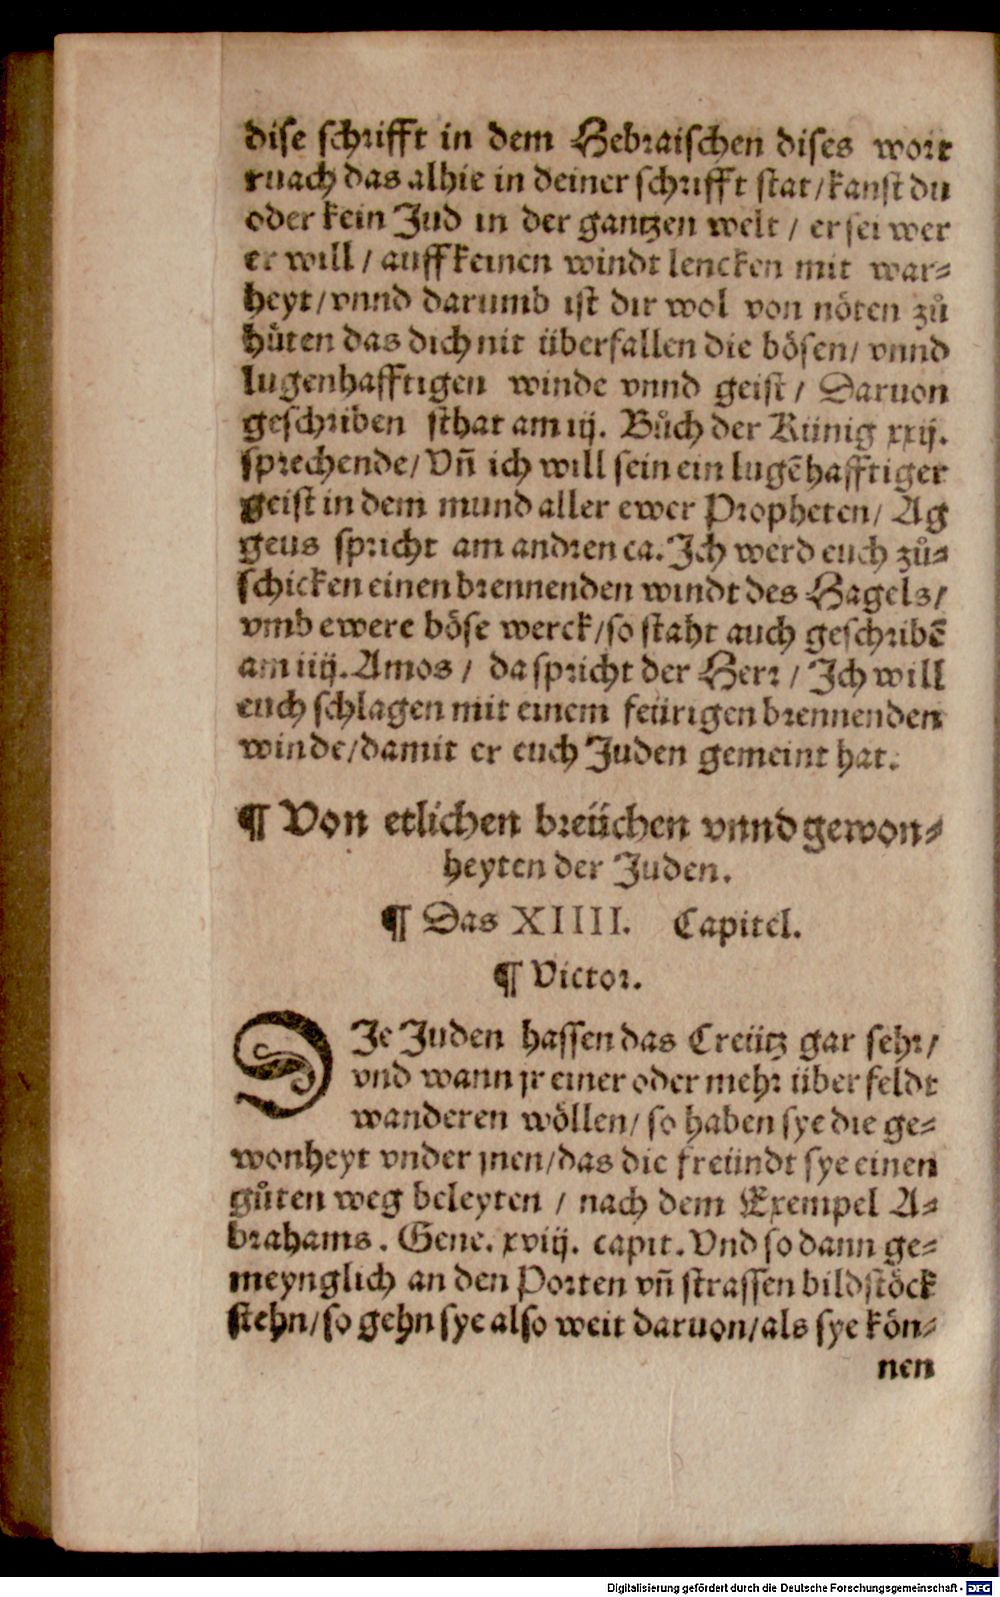 dise schrifft in dem Hebraischen dises wort
ruach das alhie in deiner schrifft stat/kanst du
oder kein Jud in der gantzen welt / er sei wer
er will / auff keinen windt lencken mit war⸗
heyt/vnnd darumb ist dir wol von nöten zů
hůten das dich nit überfallen die bösen/ vnnd
lugenhafftigen winde vnnd geist/ Daruon
geschriben sthat am iij. Bůch der Künig xxij.
sprechende/Vñ ich will sein ein lugẽhafftiger
geist in dem mund aller ewer Propheten/ Ag
geus spricht am andren ca. Ich werd euch zů⸗
schicken einen brennenden windt des Hagels/
vmb ewere böse werck/so staht auch geschribẽ
am iiij. Amos / da spricht der Herr / Ich will
euch schlagen mit einem feürigen brennenden
winde/damit er euch Juden gemeint hat.
¶ Von etlichen breüchen vnnd gewon⸗
heyten der Juden.
¶ Das XIIII. Capitel.
¶ Victor.
DIe Juden hassen das Creütz gar sehr/
vnd wann jr einer oder mehr über feldt
wanderen wöllen/ so haben sye die ge⸗
wonheyt vnder jnen/das die freündt sye einen
gůten weg beleyten / nach dem Exempel A⸗
brahams. Gene. xviij. capit. Vnd so dann ge⸗
meynglich an den Porten vñ strassen bildstöck
stehn/so gehn sye also weit daruon/als sye kön⸗
nen
Digitalisierung gefördert durch die Deutsche Forschungsgemeinschaft - DFG